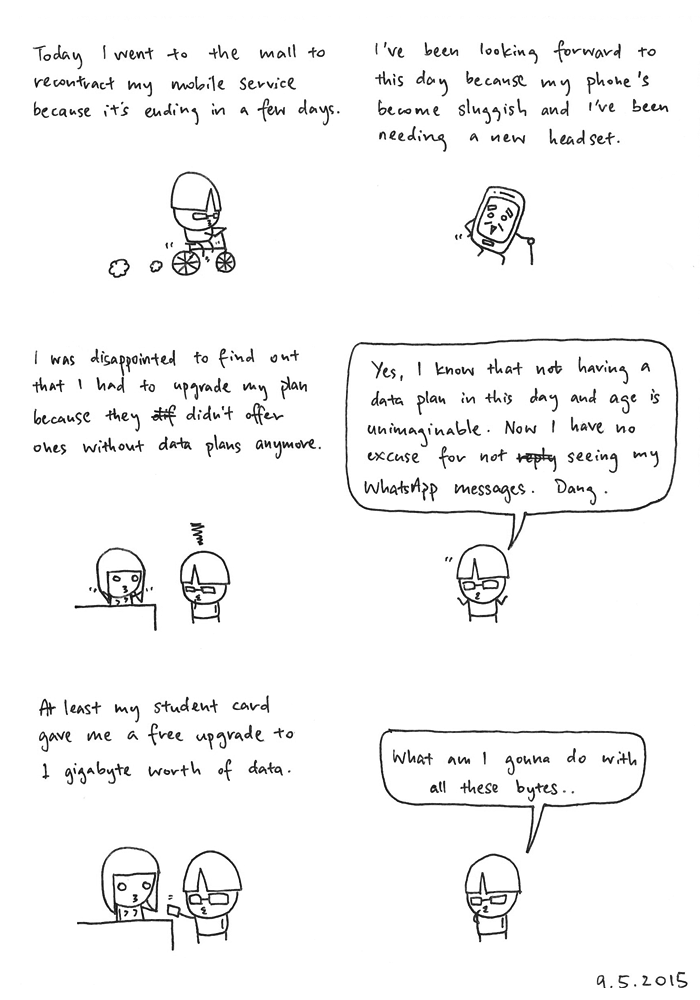 Today I went to the mall to
recontract my mobile service
because it's ending in a few days.
I've been looking forward to
this day because my phone's
become sluggish and I've been
needing a new headset.
I was disappointed to find out
that I had to upgrade my plan
because they didn't offer
ones without data plans anymore.
Yes, I know that not having a
data plan in this day and age is
unimaginable. Now I have no
excuse for not reply seeing my
WhatsApp messages. Dang.
At least my student card
gave me a free upgrade to
1 gigabyte worth of data.
What am I gonna do with
all these bytes..
9.5.2015